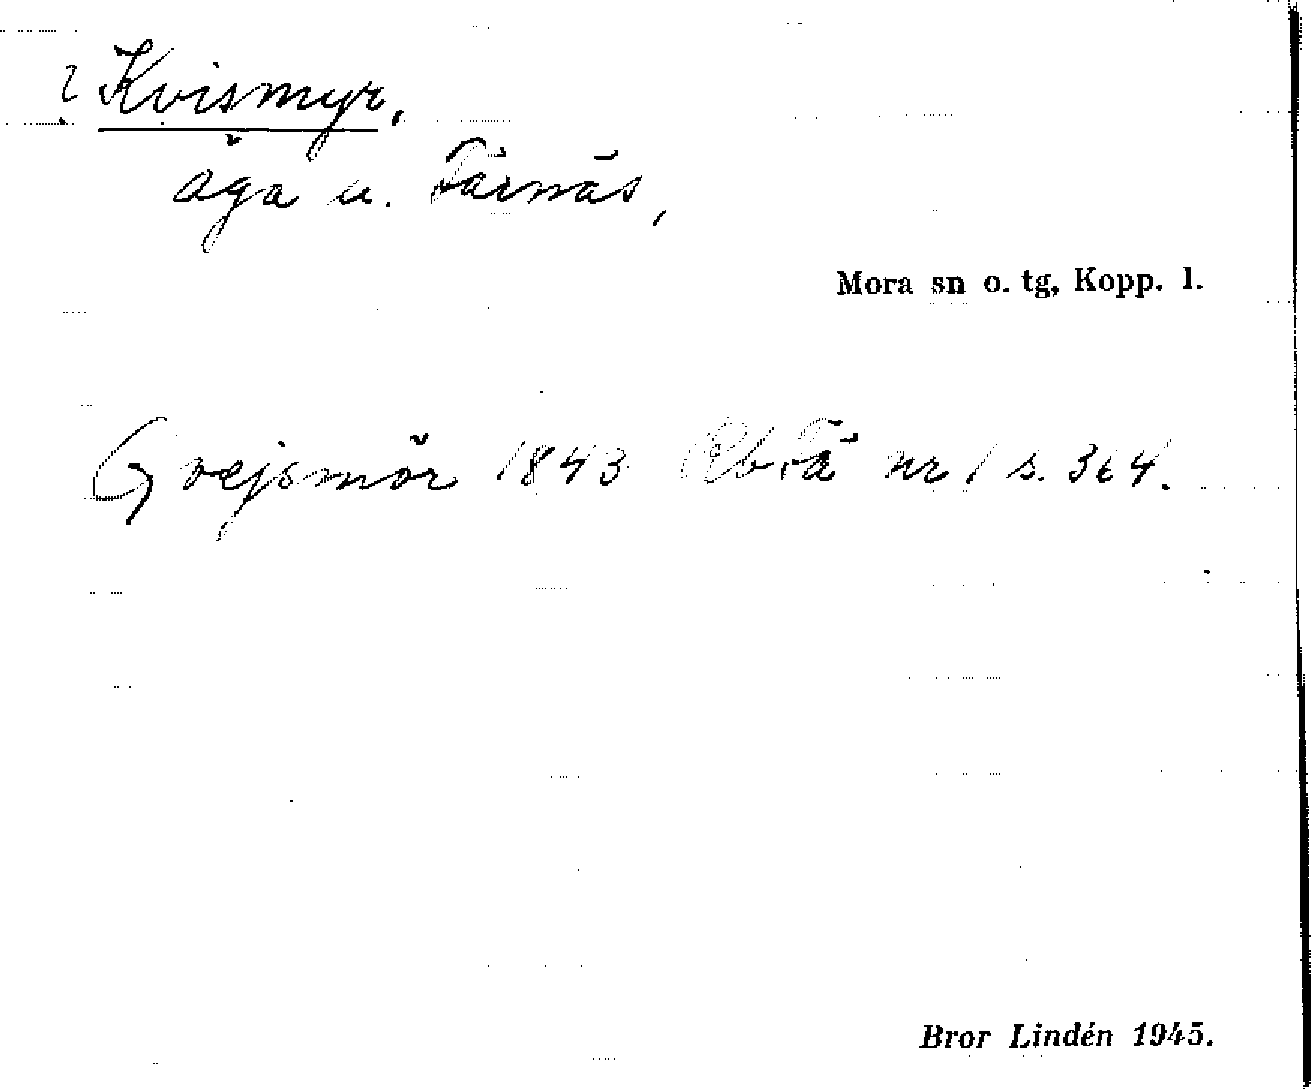 ? Kvismyr,
äga u. Färnäs,
Mora sn o. tg, Kopp. l.
Qvejsmör 1843 RbFä nr 1 s. 364.
Bror Lindén 1945.